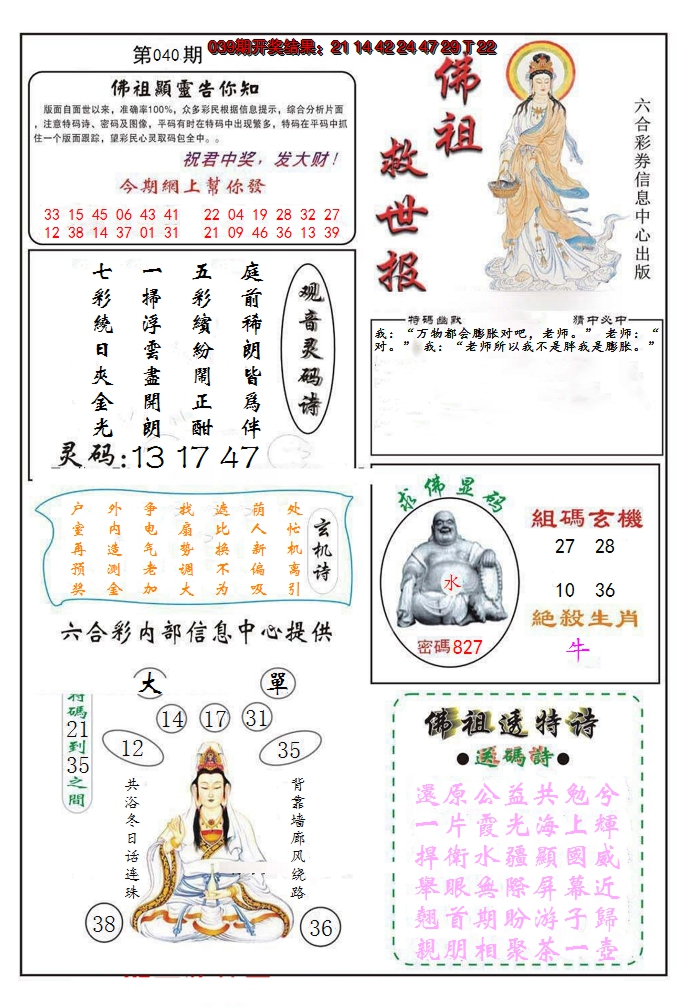 第040期
039期开奖结果：21 14 42 24 47 29 T 22
佛祖顯靈告你知
版面自面世以来，准确率100%，众多彩民根据信息提示，综合分析片面
，注意特码诗、密码及图像，平码有时在特码中出现繁多，特码在平码中抓
住一个版面跟踪，望彩民心灵取码包全中。。
祝君中奖，发大财！
今期網上幫你發
33 15 45 06 43 41 22 04 19 28 32 27
12 38 14 37 01 31 21 09 46 36 13 39
佛祖
救世报
六合彩券信息中心出版
观音灵码诗
庭前稀朗皆爲伴
五彩繽紛鬧正酣
一掃浮雲盡開朗
七彩繞日夾金光
灵码:13 17 47
特碼幽默
猜中必中
我：“万物都会膨胀对吧，老师。” 老师：“
对。” 我：“老师所以我不是胖我是膨胀。”
玄机诗
处忙机离引
荫人新偏吸
遮比换不为
找扇势调大
争电气老加
外内造测金
户室再预奖
六合彩内部信息中心提供
求佛显码
水
密碼827
組碼玄機
27 28
10 36
絕殺生肖
牛
大
單
特碼21到35之間
14 17 31
12
35
共浴冬日话连珠
背靠墙廊风绕路
38
36
佛祖透特诗
●送碼詩●
還原公益共勉兮
一片霞光海上輝
捍衛水疆顯國威
舉眼無際屏幕近
翹首期盼游子歸
親朋相聚茶一壺